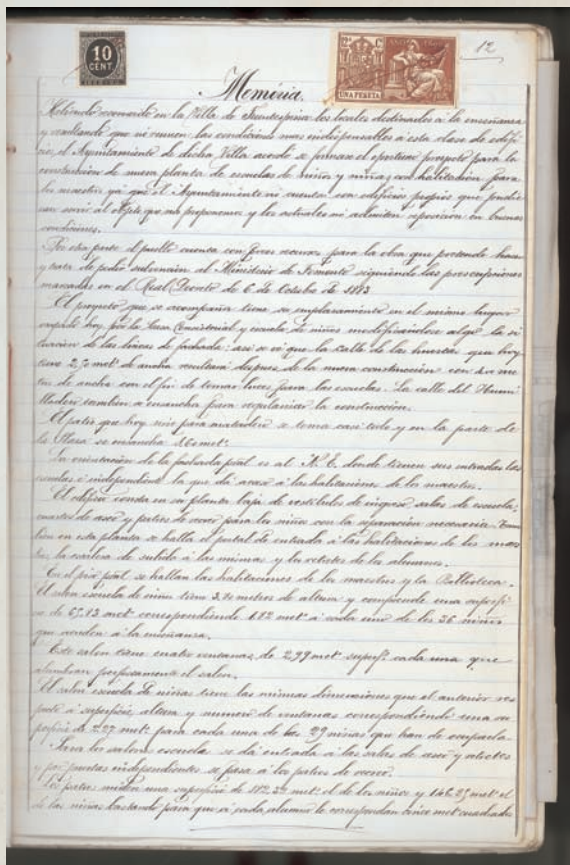 10
CENT.
UNA PESETA
12
Memoria.
reconocido en la Villa de los locales destinados a la enseñanza
y resultando que ni reunen las condiciones mas indispensables á esta clase de edifi-
cios, el Ayuntamiento de dicha Villa acordó se formase el oportuno proyecto para la
construccion de nueva planta de escuelas de niños y niñas, con habitacion para
los maestros ya que el Ayuntamiento ni cuenta con edificios propios que pudie-
ran servir al objeto que nos proponemos y los actuales ni admiten reposicion en buenas
condiciones.
Por otra parte el pueblo cuenta con pocos recursos para la obra que pretende hacer
y trata de pedir subvencion al Ministerio de Fomento siguiendo las prescripciones
marcadas en el Real Decreto de 6 de Octubre de 1883
El proyecto que se acompaña tiene su emplazamiento en el mismo lugar
ocupado hoy por la Casa Consistorial y escuela de niños modificandose algo la si-
tuacion de las lineas de fachada: asi se vé que la calle de las huertas que hoy
tiene 2,50 met. de ancha resultará despues de la nueva construccion con me-
tros de ancha con el fin de tomar luces para las escuelas. La calle del Humi-
lladero tambien se ensancha para regularizar la construccion.
El patio que hoy sirve para matadero se toma casi todo y en la parte de
la Plaza se ensancha met.
La orientacion de la fachada pral es al N. E. donde tienen sus entradas las
escuelas é independiente la que dá acceso á las habitaciones de los maestros.
El edificio consta en su planta baja de vestibulos de ingreso, salas de escuela,
cuartos de aseo y patios de recreo para los niños con la separacion necesaria. Tam-
bien en esta planta se halla el portal de entrada á las habitaciones de los maes-
tros, la escalera de subida á las mismas y los retretes de los alumnos.
En el piso pral se hallan las habitaciones de los maestros y la Biblioteca.
El salon escuela de niños tiene metros de altura y comprende una superfi-
cie de 65,13 met. correspondiendo 1,82 met. á cada uno de los 36 niños
que acuden á la enseñanza.
Este salon tiene cuatro ventanas de 2,99 met. superf. cada una que
alumbran perfectamente el salon.
El salon escuela de niñas tiene las mismas dimensiones que el anterior res-
pecto á superficie, altura y numero de ventanas correspondiendo una su-
perficie de 2,22 met. para cada una de las 29 niñas que han de ocuparla.
Para los salones escuelas se dá entrada á las salas de aseo y retretes
y por puertas independientes se pasa á los patios de recreo.
Los patios miden una superficie de met. el de los niños y 146,25 met. el
de las niñas bastando para que á cada alumno le correspondan cinco met. cuadrados